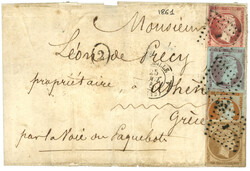 Monsieur
1861
Léon de Précy
2
propriétaire à Athènes
Grèce
par la Voie du Paquebot